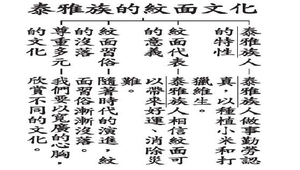 泰雅族的紋面文化
泰雅族人
的特性
泰雅族人做事勤勞認
真，以種植小米和打
獵維生。
紋面代表
的意義
泰雅族人相信紋面可
以帶來好運、消除災
難。
紋面習俗
的沒落
隨著時代的演進，紋
面習俗漸漸沒落。
尊重多元
的文化
我們要以寬廣的心胸，
欣賞不同的文化。